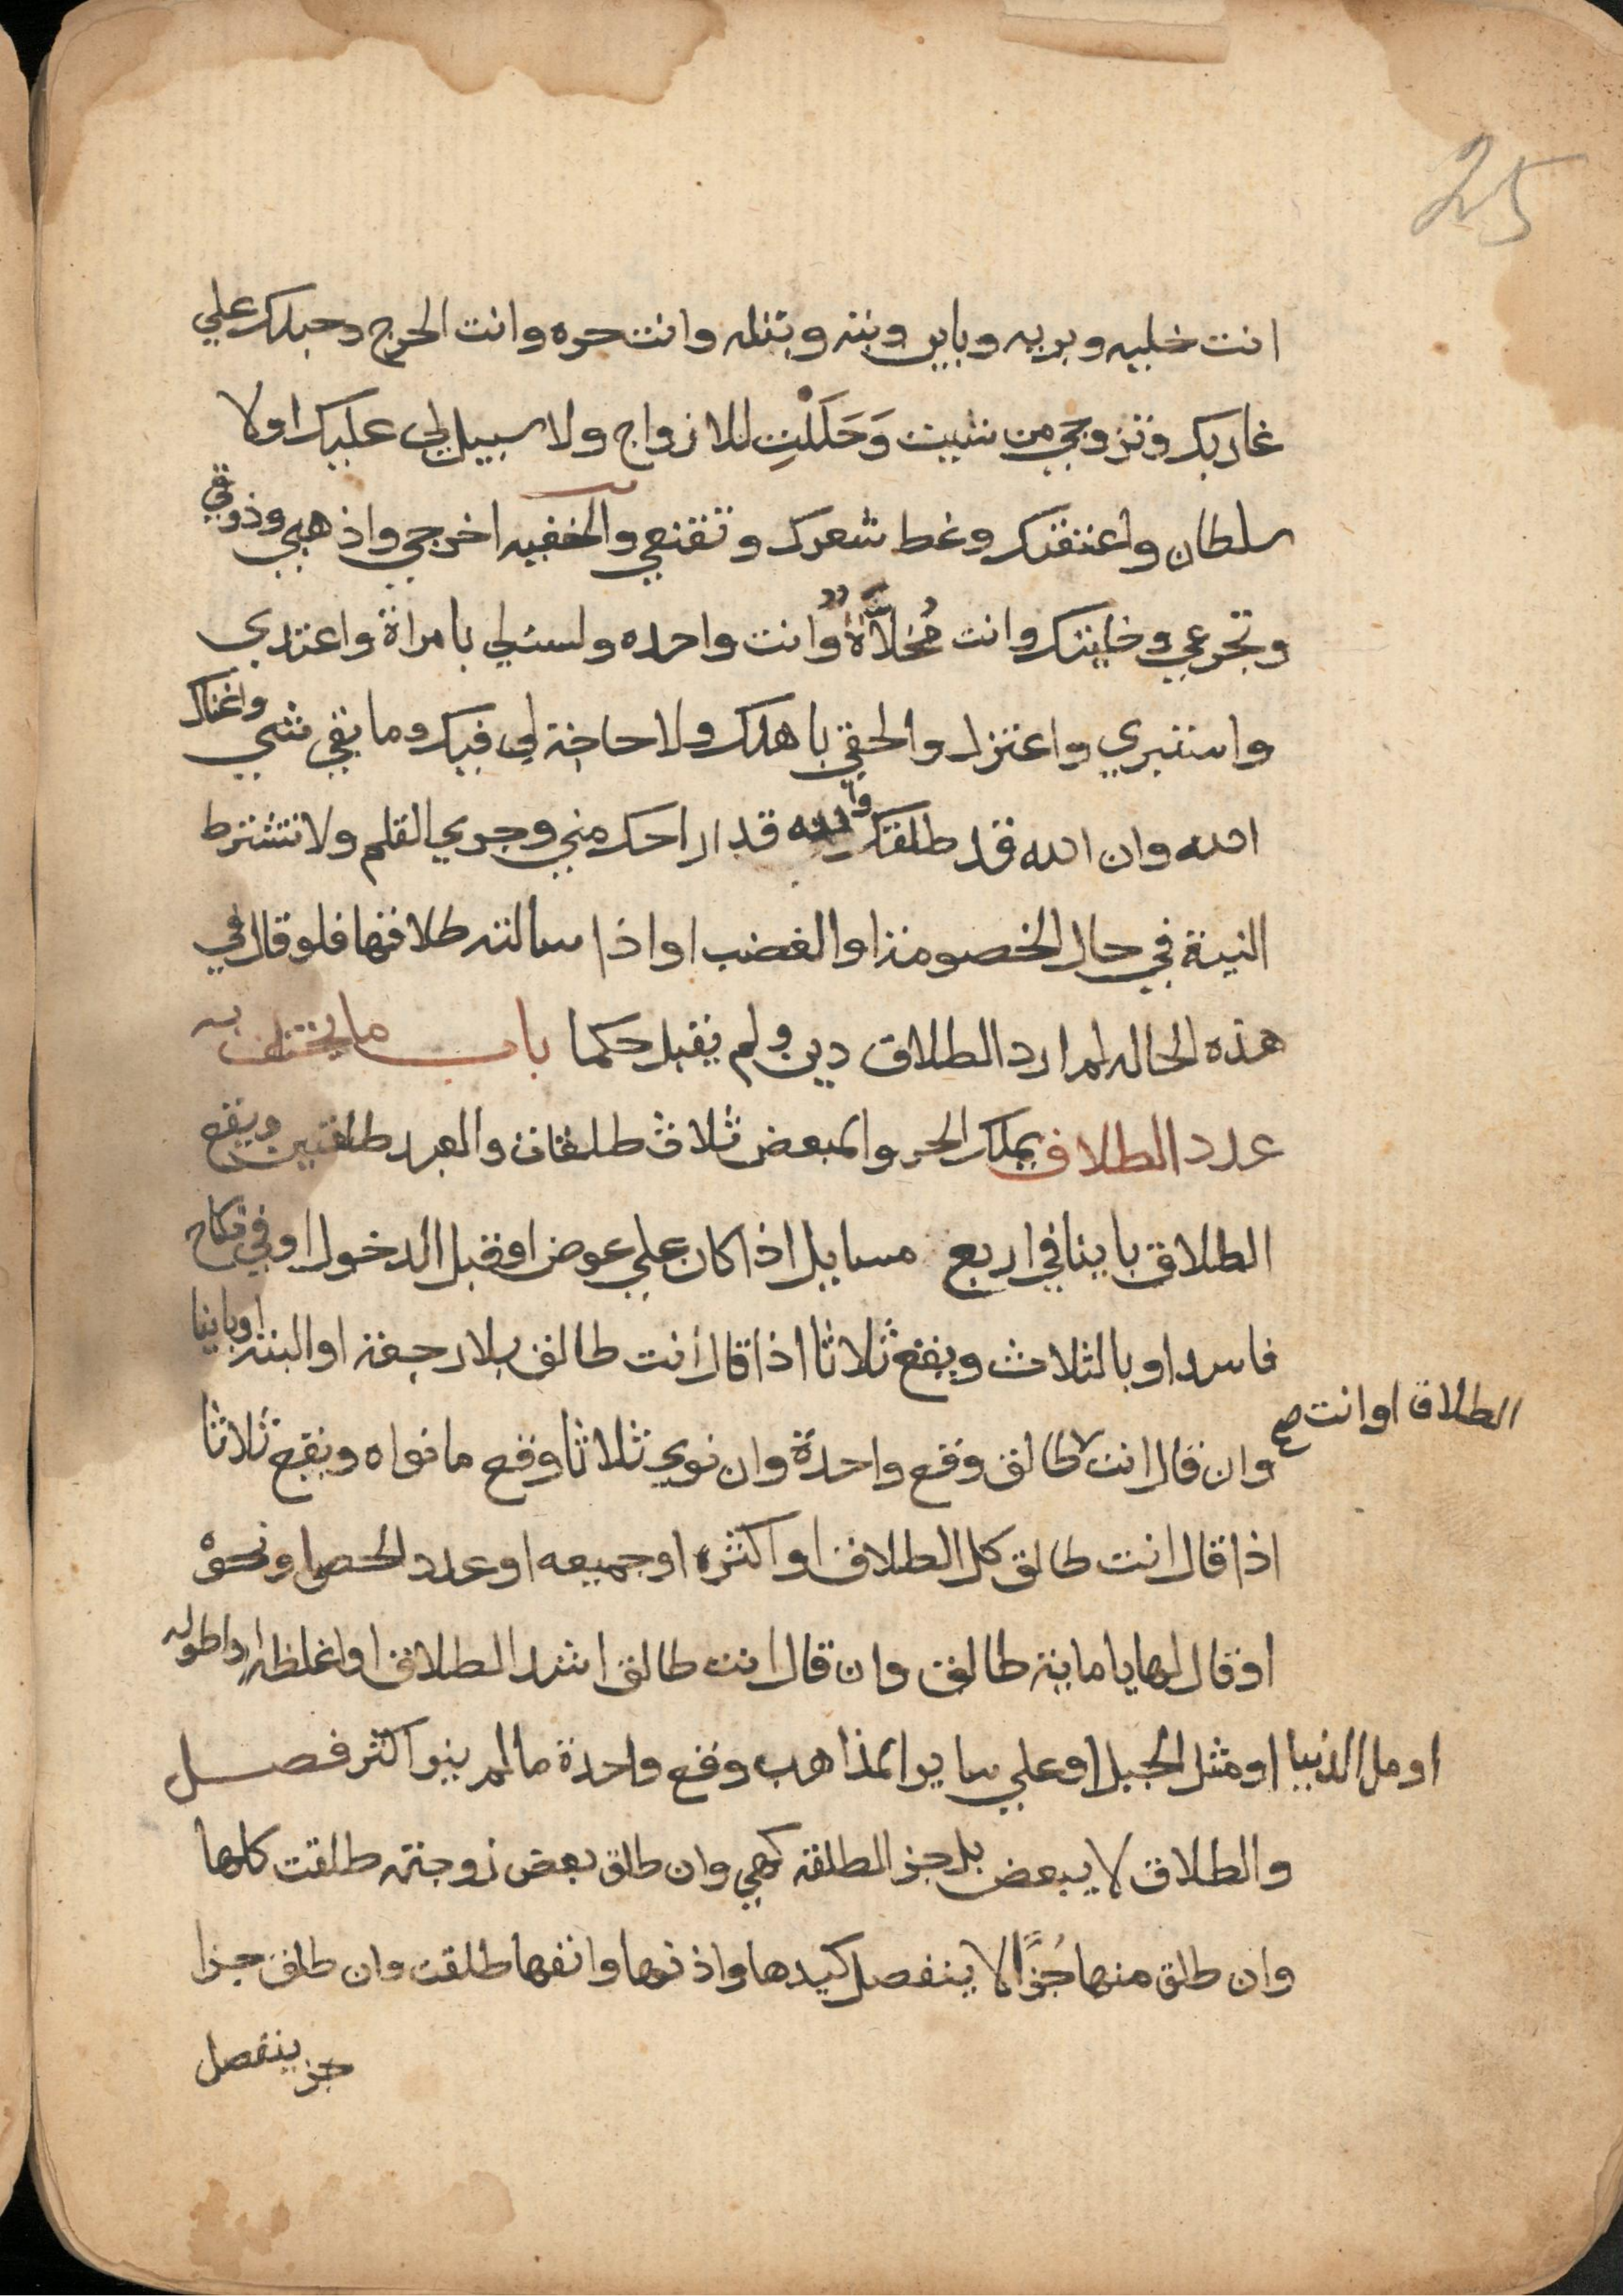 25
انت خليه وبريه وباين وبته وبتله وانت حره وانت الحرج وحبلك علي
غاربك وتزوجي من شيت وَحَلَلْتِ للازواج ولا سبيل لي عليك اولا
سلطان واعتقتك وغط شعرك وتقنعي والخفيه اخرجي واذهبي وذوقي
وتجرعي وخليتك وانت مُخلاّةٌ وانت واحده ولست لي بامراة واعتدي
واستبري واعتزل والحقي باهلك ولا حاجة لي فيك وما بقي شي واغناك
الله وان الله قد طلقك والله قد اراحك مني وجري القلم ولا تشترط
النية في حال الخصومة او الغضب او اذا سالته طلاقها فلو قال في
هذه الحاله لم ارد الطلاق دين ولم يقبل حكما باب ما يختلف به
عدد الطلاق يملك الحر والمبعض ثلاث طلقات والعبد طلقتين ويقع
الطلاق باينا في اربع مسايل اذا كان علي عوض او قبل الدخول او في نكاح
فاسد او بالثلاث ويقع ثلاثا اذا قال انت طالق بلا رجعة او البتة او باينا
الطلاق او انت صح
وان قال انت طالق وقع واحدة وان نوي ثلاثا وقع ما نواه ويقع ثلاثا
اذا قال انت طالق كل الطلاق او اكثره او جميعه او عدد الحصا ونحوه
او قال لها يا ماية طالق وان قال انت طالق اشد الطلاق او اغلظه او اطوله
او مل الدنيا او مثل الجبل او علي ساير المذاهب وقع واحدة ما لم ينو اكثر فصل
والطلاق لا يبعض بل جز الطلقة كهي وان طلق بعض زوجته طلقت كلها
وان طلق منها جُزًا لا ينفصل كيدها واذنها وانفها طلقت وان طلق جزا
جز ينفصل